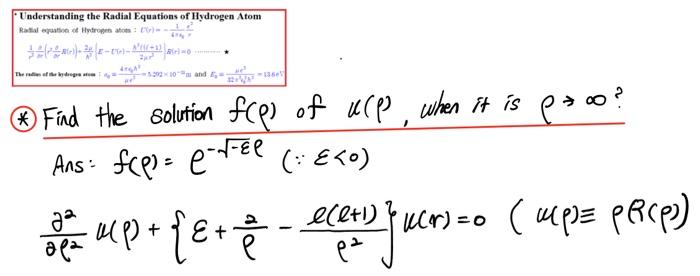 * Understanding the Radial Equations of Hydrogen Atom
Radial equation of Hydrogen atom : U(r) = − 1/(4πε₀) e²/r
1/r² ∂/∂r (r² ∂/∂r R(r)) + 2μ/ħ² {E − U(r) − ħ²l(l+1)/(2μr²)} R(r) = 0 ············ ★
The radius of the hydrogen atom : a₀ = 4πε₀ħ²/(μe²) = 5.292 × 10⁻¹¹m and E₀ = μe⁴/(32π²ε₀²ħ²) = 13.6eV
⊛ Find the solution f(ρ) of u(ρ), when it is ρ→∞?
Ans: f(ρ) = e^(-√-ε ρ) (∵ ε<0)
∂²/∂ρ² u(ρ) + {ε + 2/ρ − l(l+1)/ρ²} u(r) = 0 ( u(ρ) ≡ ρR(ρ))